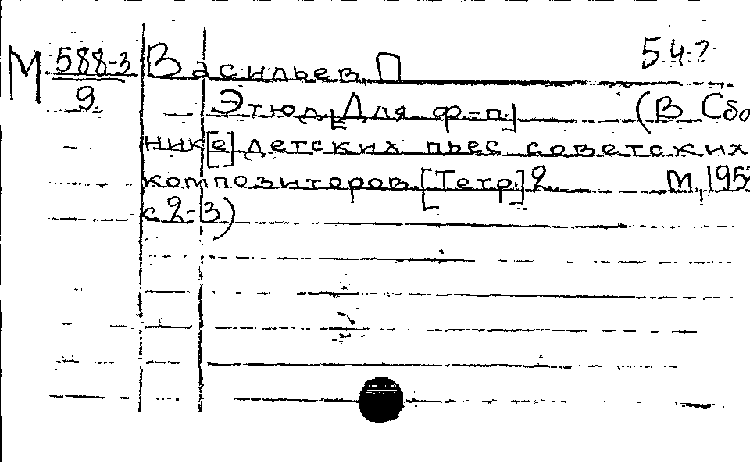 М 588-3 Васильев, П 54-2
9 Этюд [Для ф=п] (В Сбо
ник[е] детских пьес советских
композиторов. [Тетр] 2 М, 195
с 2-3)